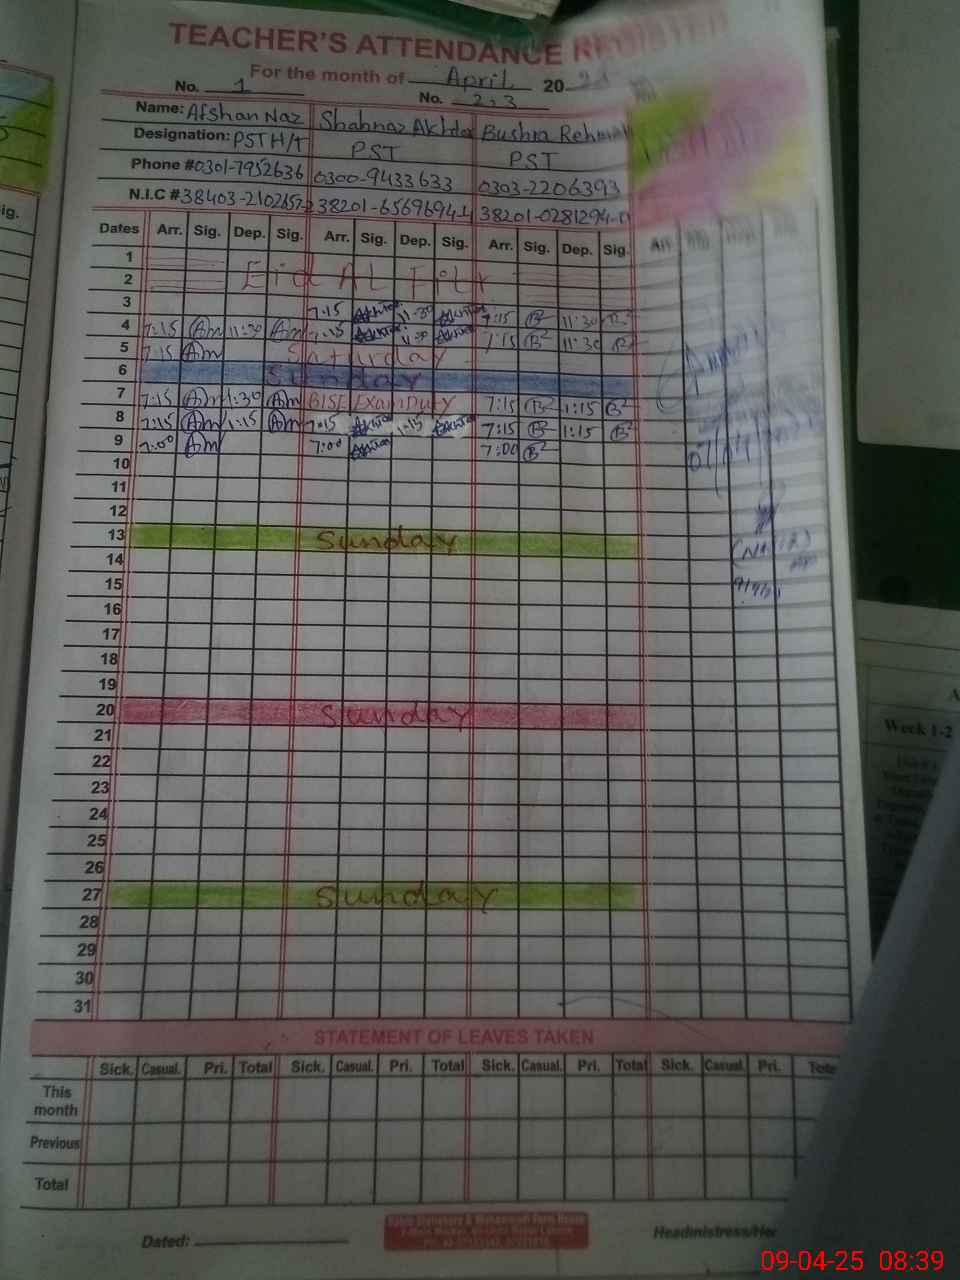 TEACHER'S ATTENDANCE REGISTER
For the month of April 20
No. 1 No. 2,3
Name: Afshan Naz Shabnaz Akhtar Bushra Rehman
Designation: PST H/T PST PST
Phone #0301-7952636 0300-9433633 0303-2206393
N.I.C #38403-2102657-2 38201-6569694-4 38201-0281294-0
Dates Arr. Sig. Dep. Sig. Arr. Sig. Dep. Sig. Arr. Sig. Dep. Sig. Arr.
1
2 Eid Al Fitr
3 7:15 Akhtar 11:30 Akhtar 7:15 B² 11:30 B²
4 7:15 Am 11:30 Am 7:15 Akhtar 11:30 Akhtar 7:15 B² 11:30 B²
5 7:15 Am Saturday
6 Sunday
7 7:15 Am 1:30 Am BISE Exam Duty 7:15 B² 1:15 B²
8 7:15 Am 1:15 Am 7:15 Akhtar 1:15 Akhtar 7:15 B² 1:15 B²
9 7:00 Am 7:00 Akhtar 7:00 B²
10
11
12
13 Sunday
14
15
16
17
18
19
20 Sunday
21
22
23
24
25
26
27 Sunday
28
29
30
31
STATEMENT OF LEAVES TAKEN
Sick. Casual. Pri. Total Sick. Casual. Pri. Total Sick. Casual. Pri. Total Sick. Casual. Pri.
This month
Previous
Total
Dated: Headmistress/Her
Week 1-2
09-04-25 08:39